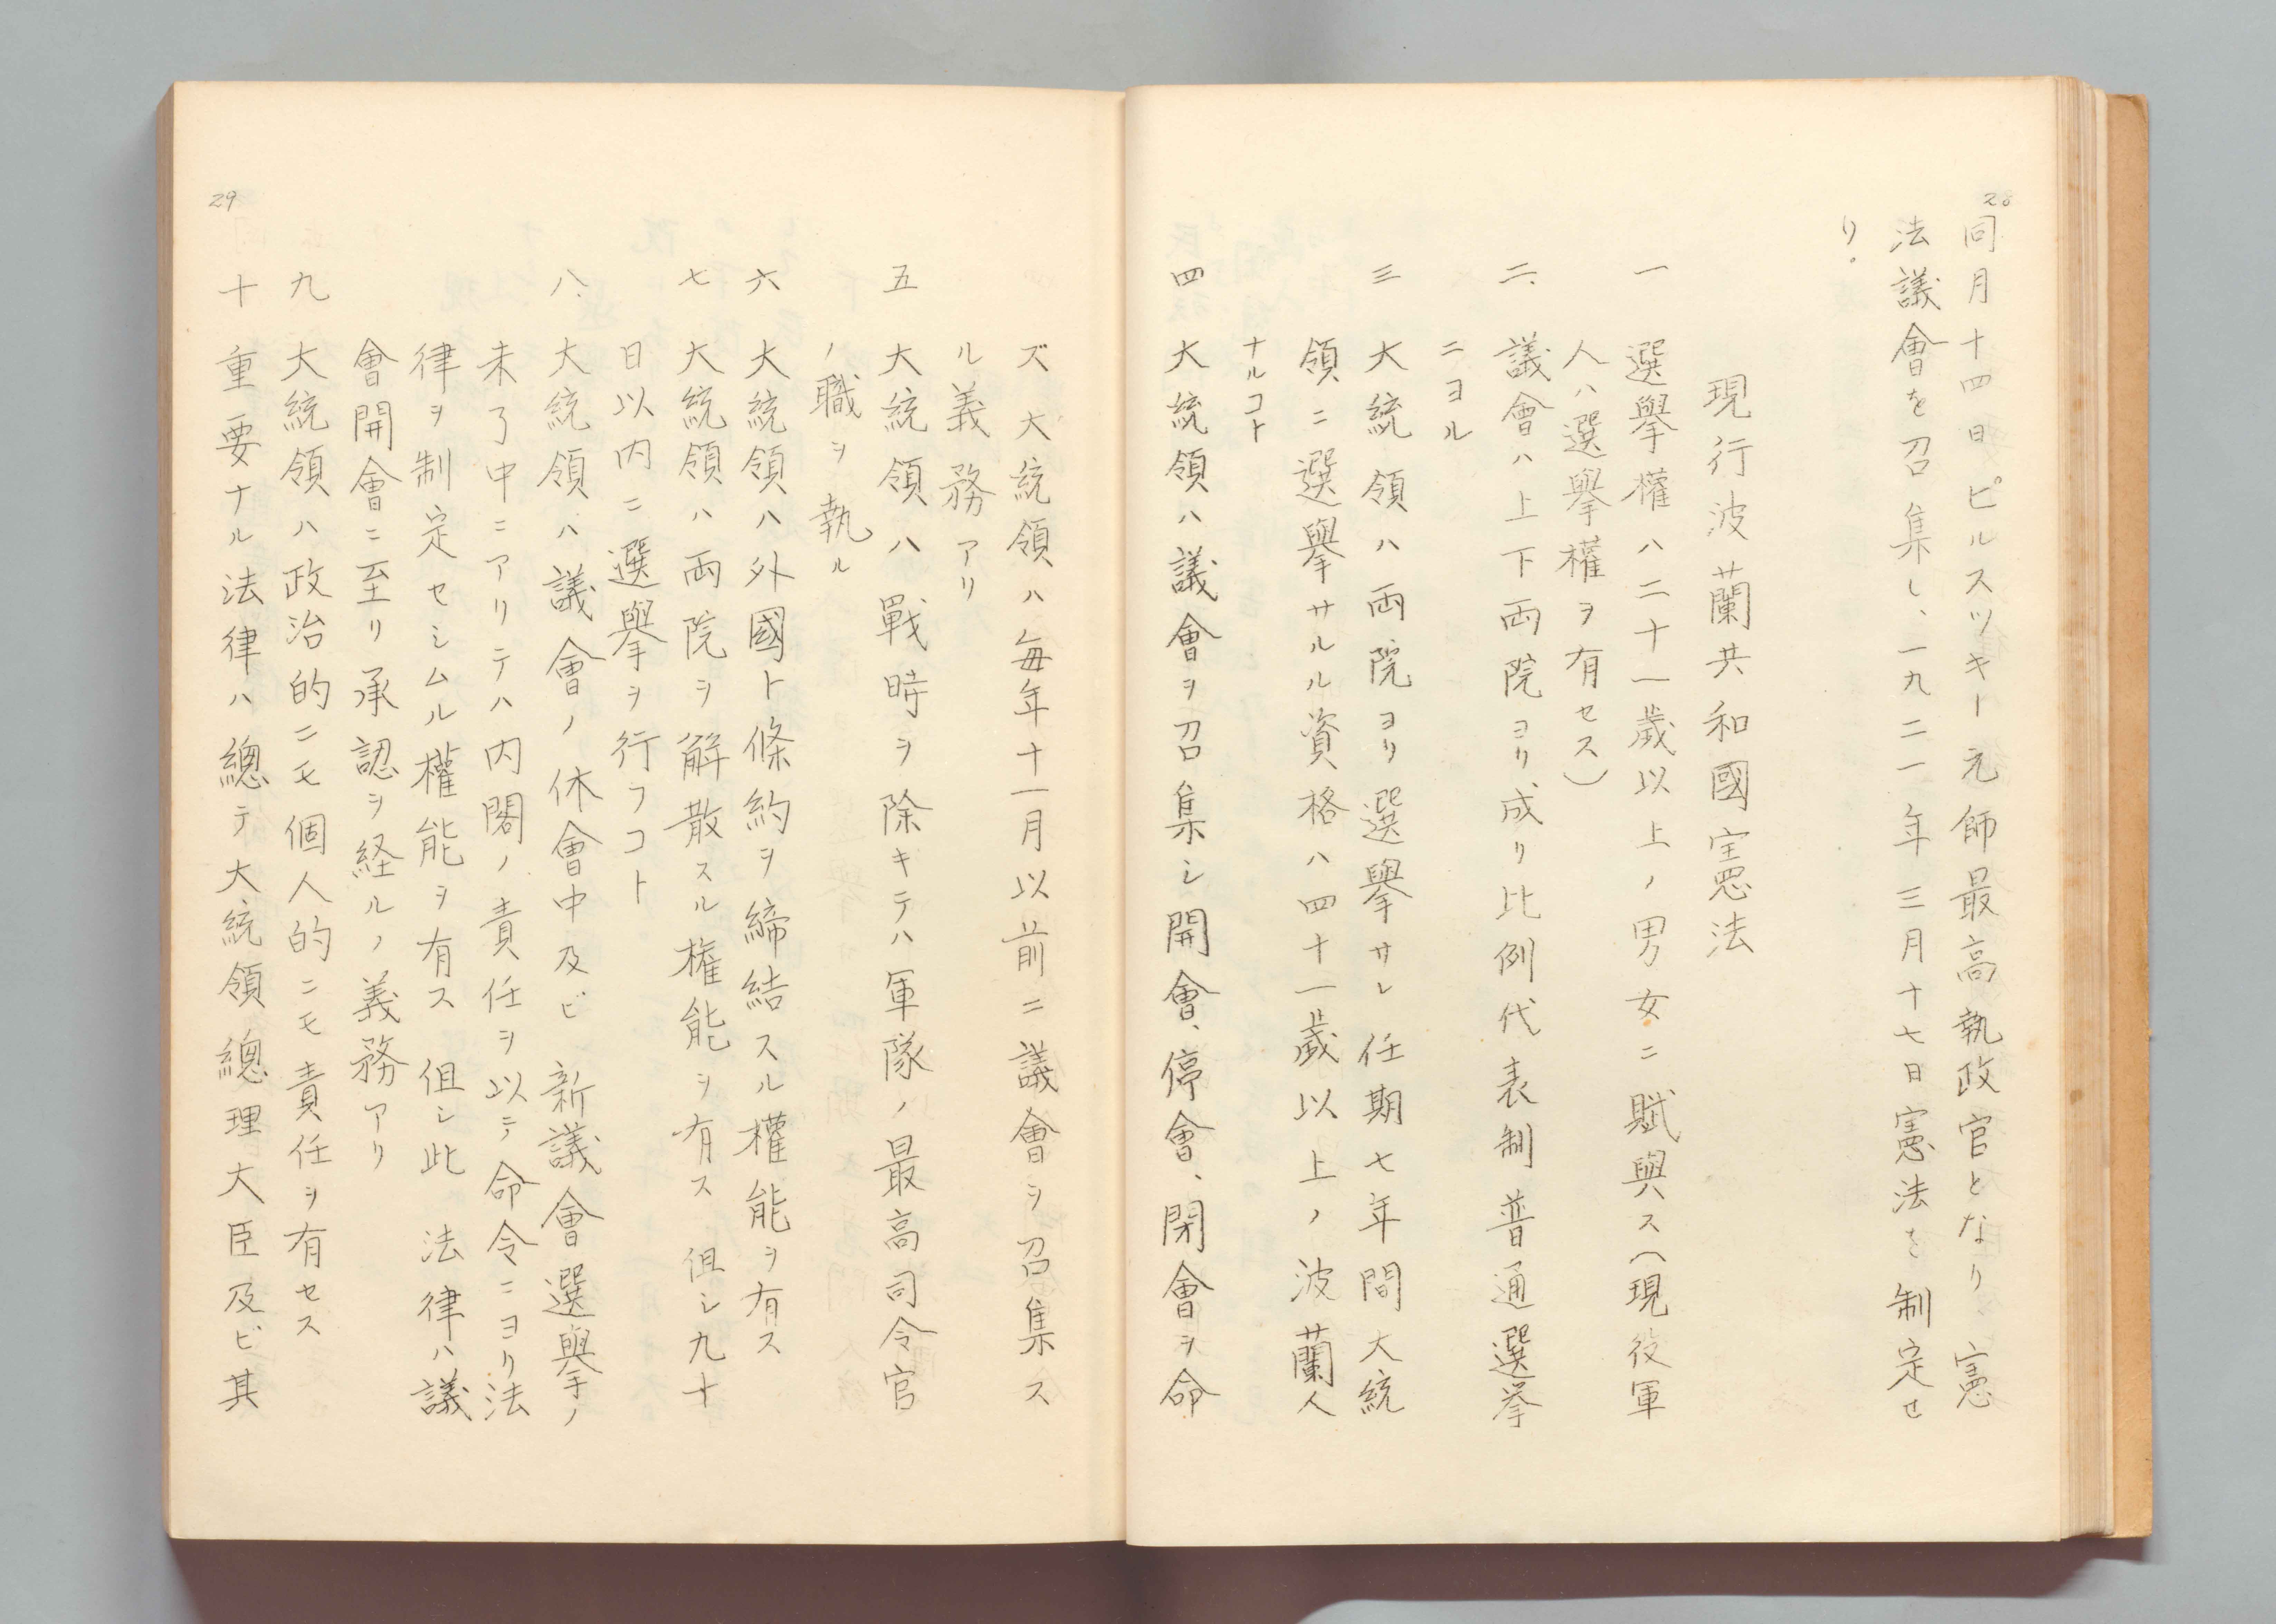 28
同月十四日ピルスツキー元師最高執政官となり、憲
法議會を召集し、一九二一年三月十七日憲法を制定せ
り。
現行波蘭共和國憲法
一 選擧權ハ二十一歲以上ノ男女ニ賦與ス(現役軍
人ハ選擧權ヲ有セス)
二、議會ハ上下両院ヨリ成リ比例代表制普通選挙
ニヨル
三 大統領ハ両院ヨリ選擧サレ任期七年間大統
領ニ選擧サルル資格ハ四十一歲以上ノ波蘭人
ナルコト
四 大統領ハ議會ヲ召集シ開會、停會、閉會ヲ命
ズ 大統領ハ毎年十一月以前ニ議會ヲ召集ス
ル義務アリ
五 大統領ハ戰時ヲ除キテハ軍隊ノ最高司令官
ノ職ヲ執ル
六 大統領ハ外國ト條約ヲ締結スル權能ヲ有ス
七 大統領ハ両院ヲ解散スル権能ヲ有ス 但シ九十
日以内ニ選擧ヲ行フコト
八、大統領ハ議會ノ休會中及ビ 新議會選擧ノ
未了中ニアリテハ内閣ノ責任ヲ以テ命令ニヨリ法
律ヲ制定セシムル權能ヲ有ス 但シ此 法律ハ議
會開會ニ至リ承認ヲ経ルノ義務アリ
九 大統領ハ政治的ニモ個人的ニモ責任ヲ有セス
十 重要ナル法律ハ總テ大統領總理大臣及ビ其
29